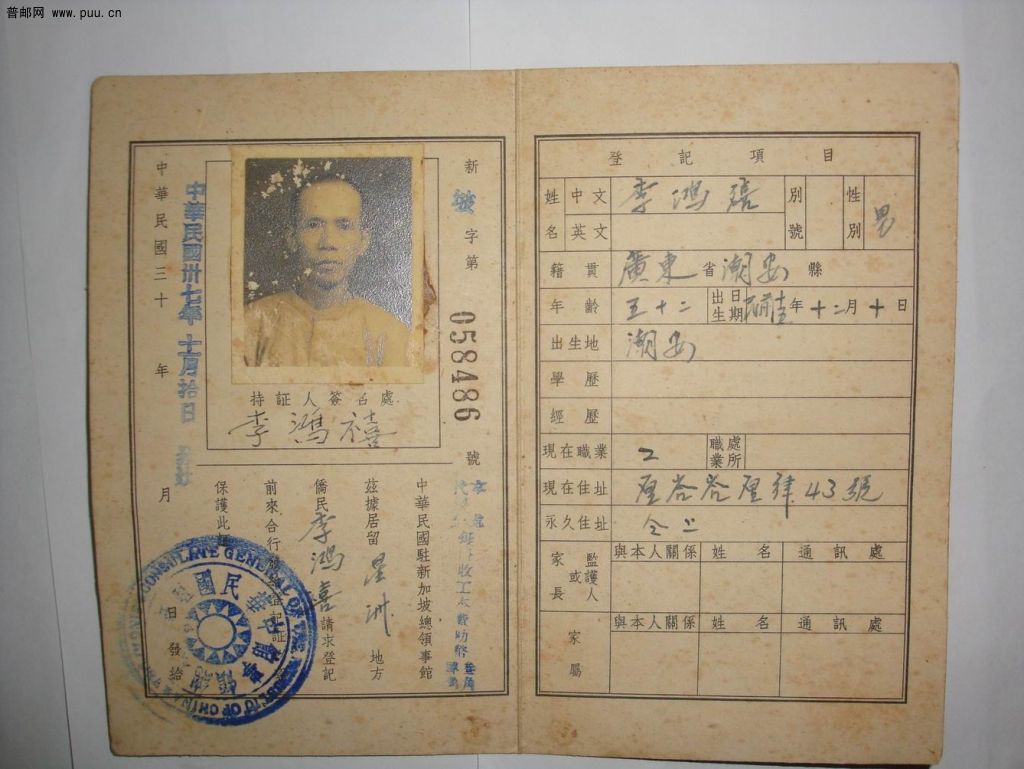 普邮网 www.puu.cn
新坡字第058486號
持証人簽名處
李鴻禧
中華民國駐新加坡總領事館
茲據居留星洲地方
僑民李鴻喜請求登記
前來合行
登記証
保護此
中華民國三十 年 月 日發給
中華民國卅七年十一月拾日
CONSULATE GENERAL OF THE REPUBLIC OF CHINA
登記項目
姓名 中文 李鴻禧 別號 性別 男
英文
籍貫 廣東省潮安縣
年齡 五十二 出生日期 年十二月十日
出生地 潮安
學歷
經歷
現在職業 工 職業處所
現在住址 43號
永久住址 仝上
家長或監護人 與本人關係 姓名 通訊處
家屬 與本人關係 姓名 通訊處